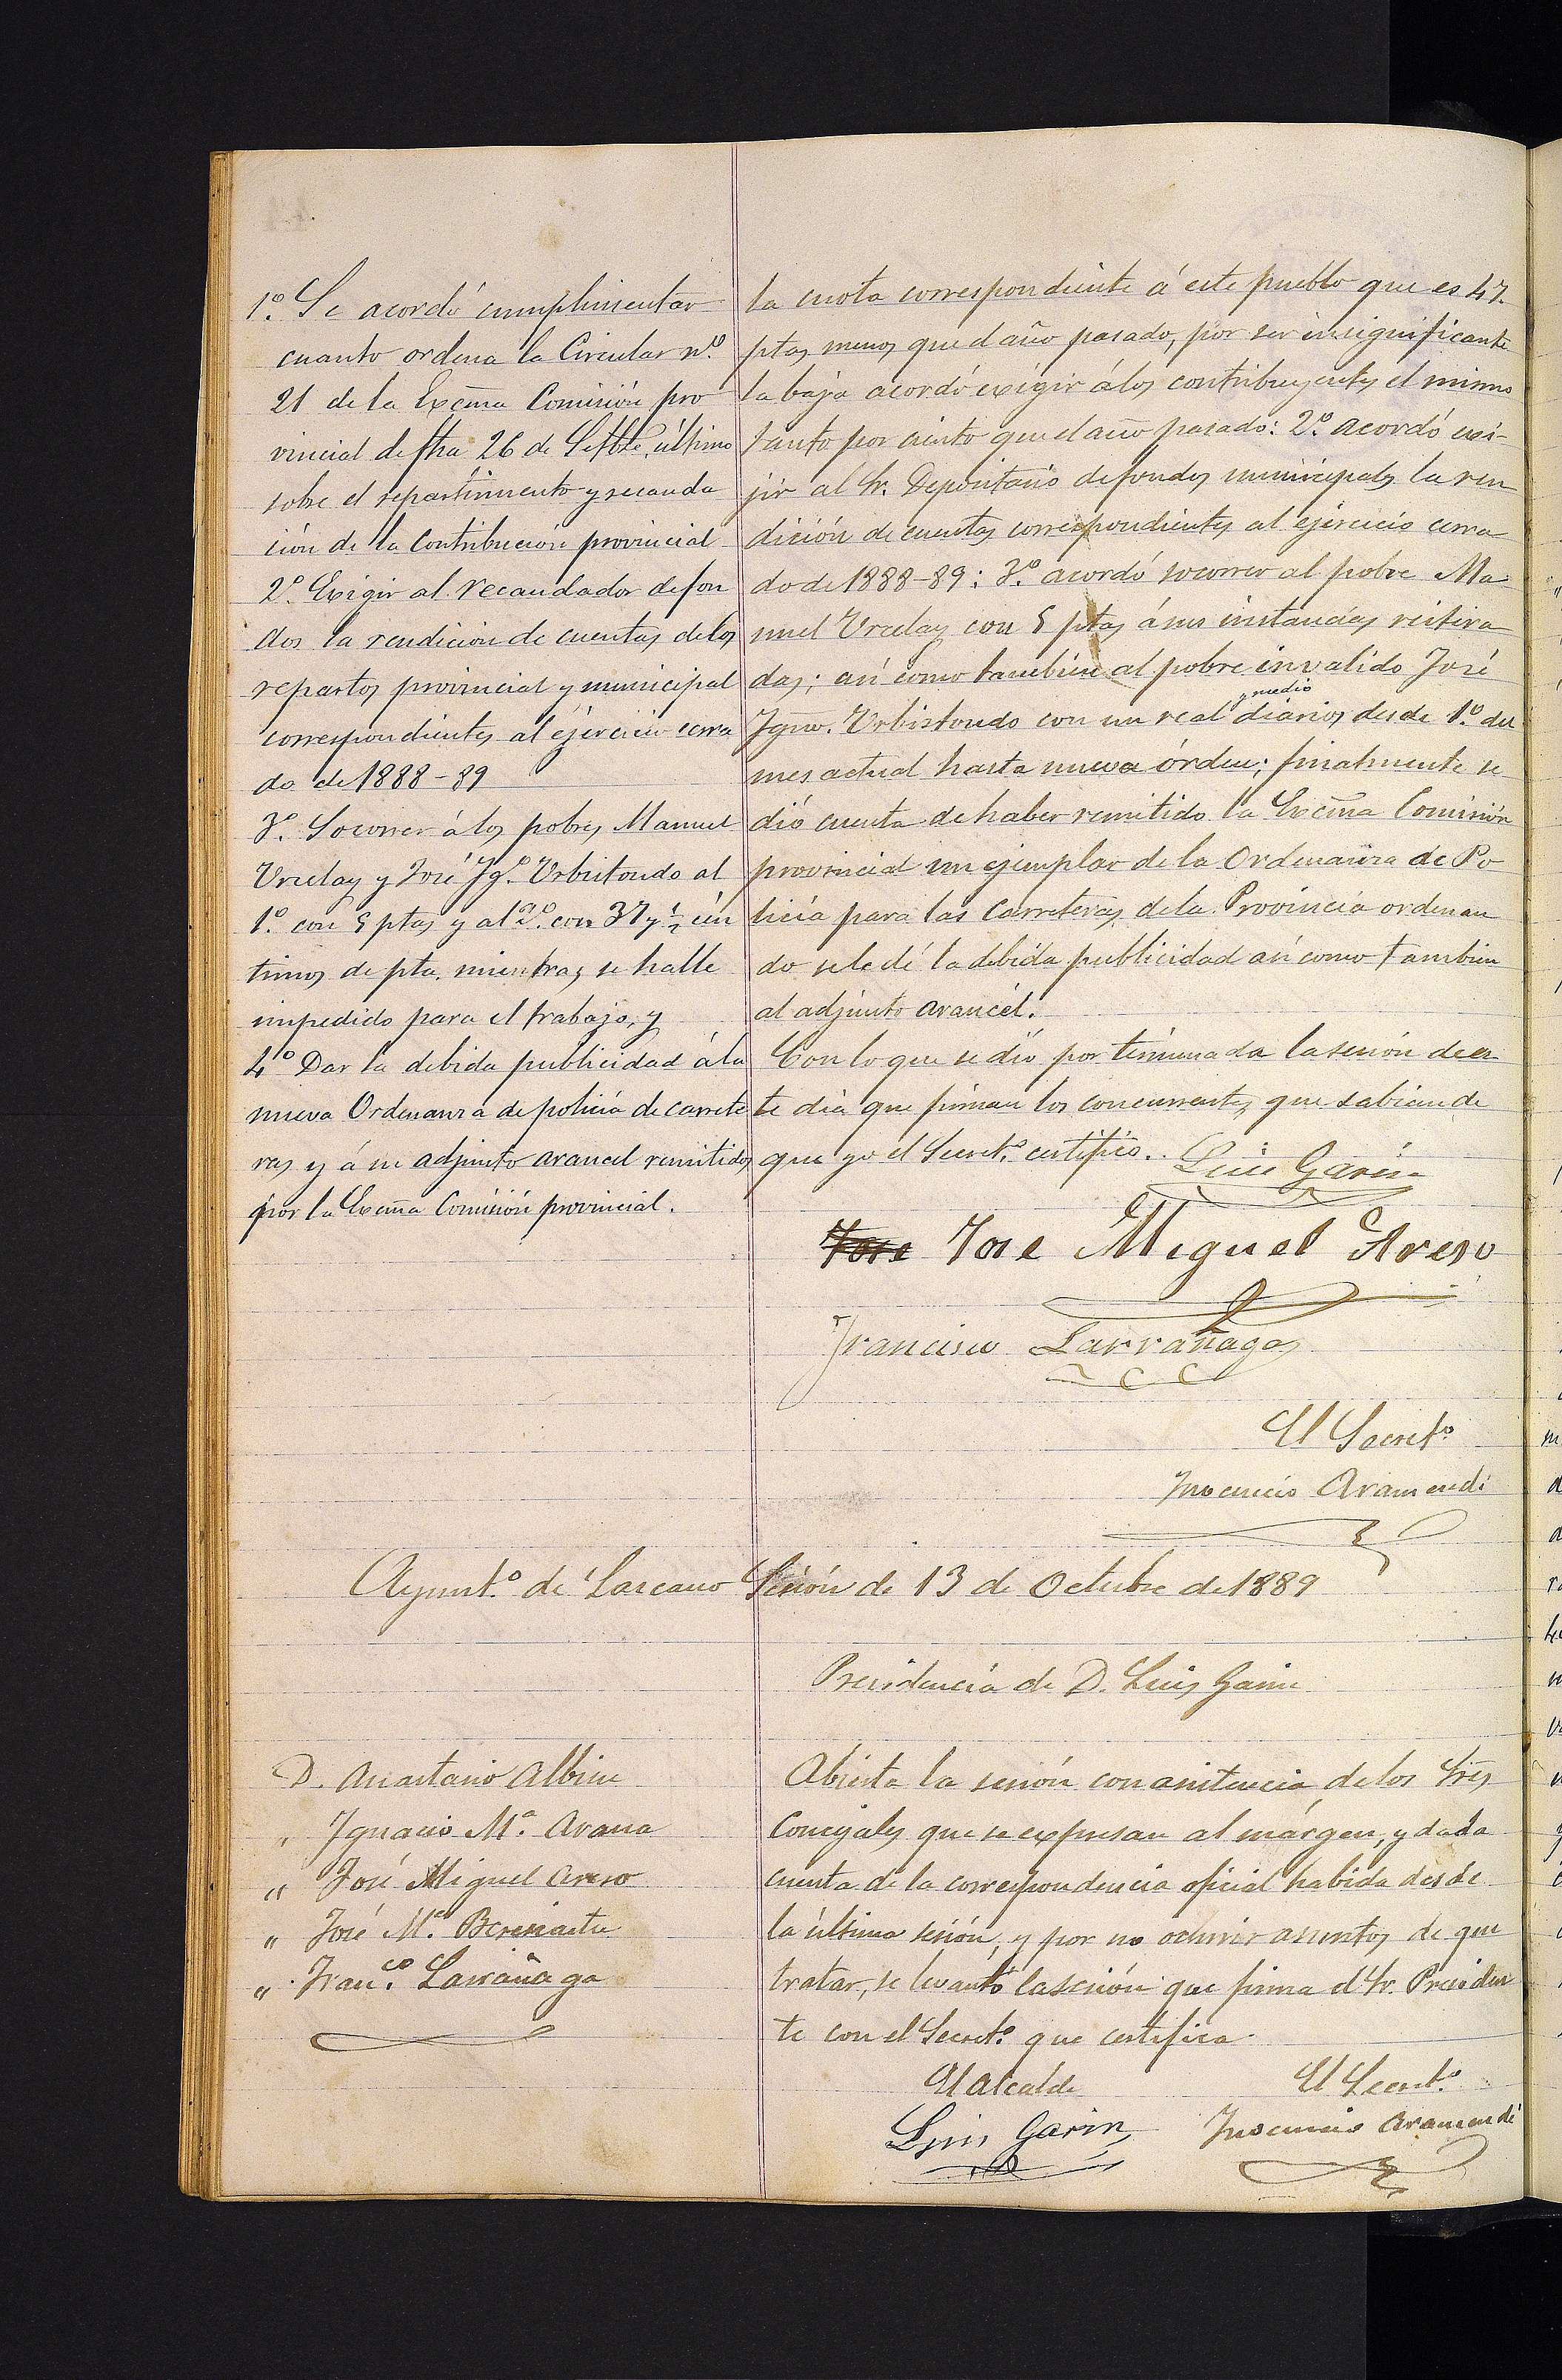 1º. Se acordó cumplimentar
cuanto ordena la Circular nº.
21 de la Excma Comisión pro
vincial de fha 26 de Setbre. último
sobre el repartimiento y recauda
ción de la Contribución provincial
2º. Exigir al recaudador de fon
dos la rendición de cuentas de los
repartos provincial y municipal
correspondientes al ejercicio cerra
do de 1888-89
3º. Socorrer á los pobres Manuel
Urcelay y José Ygº. Urbistondo al
1º. con 5 ptas y al 2º. con 37 y ½ cén
timos de pta. mientras se halle
impedido para el trabajo, y
4º Dar la debida publicidad á la
nueva Ordenanza de policía de carrete
ras y á su adjunto arancel remitidos
por la Excma Comisión provincial.
la cuota correspondiente á este pueblo que es 47
ptas menos que el año pasado, por ser insignificante
la baja acordó exigir á los contribuyentes el mismo
tanto por ciento que el año pasado: 2º. acordó exi-
jir al Sr. Depositario de fondos municipales la ren
dición de cuentas correspondientes al ejercicio cerra
do de 1888-89: 3º. acordó socorrer al pobre Ma
nuel Urcelay con 5 ptas á sus instancias reitira
das; así como tambien al pobre invalido José
Ygno. Urbistondo con un real y medio diarios desde 1º. del
mes actual hasta nueva órden; finalmente se
dió cuenta de haber remitido la Excma Comisión
provincial un ejemplar de la Ordenanza de Po
licía para las Carreteras de la Provincia ordenan
do se le dé la debida publicidad así como tambien
al adjunto arancél.
Con lo que se dió por terminada la sesión de es
te dia que firman los concurrentes que sabian de
que yo el Secretº. certifico.. Luis Garin
Jose Jose Miguel Areso
Francisco Larrañaga
El Secretº
Inocencio Aramendi
Ayuntº. de Lazcano Sesión de 13 de Octubre de 1889
Presidencia de D. Luis Garin
D. Anastasio Albisu
" Ygnacio Mª. Arana
" José Miguel Areso
" José Mª. Berasiartu
" Francº. Larrañaga
Abierta la sesión con asistencia de los Sres
Concejales que se expresan al márgen, y dada
cuenta de la correspondencia oficial habida desde
la última sesión, y por no ocurrir asuntos de que
tratar, se levantó la sesión que firma el Sr. Presiden
te con el Secretº. que certifica.
El Alcalde El Secretº.
Luis Garin Inocencio Aramendi